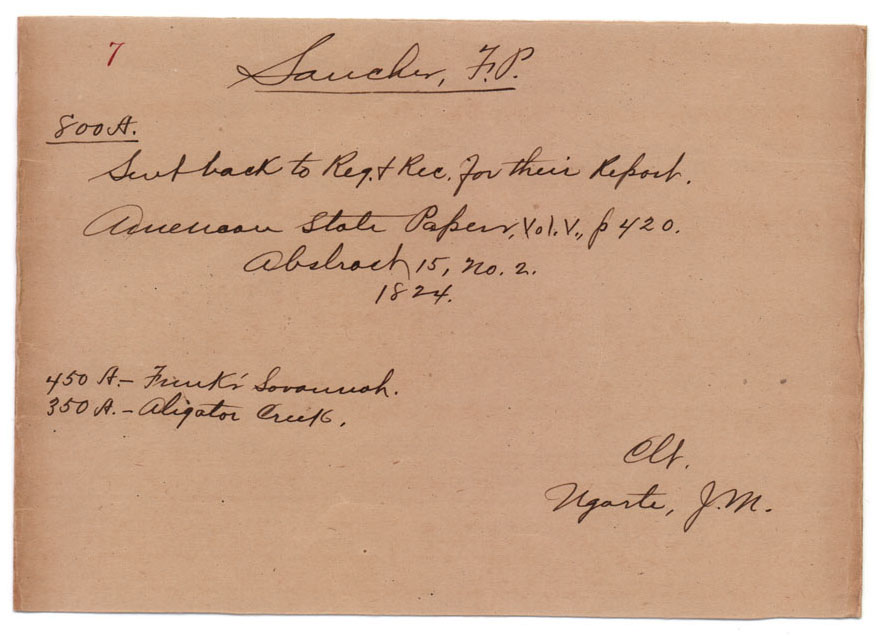 7
Sanchez, F.P.
800 A.
Sent back to Reg. & Rec. for their Report.
American State Papers, Vol. V., p 420.
Abstract 15, No. 2.
1824.
450 A. – Funk's Savannah.
350 A. – Aligator Creek.
Clt.
Ugarte, J.M.